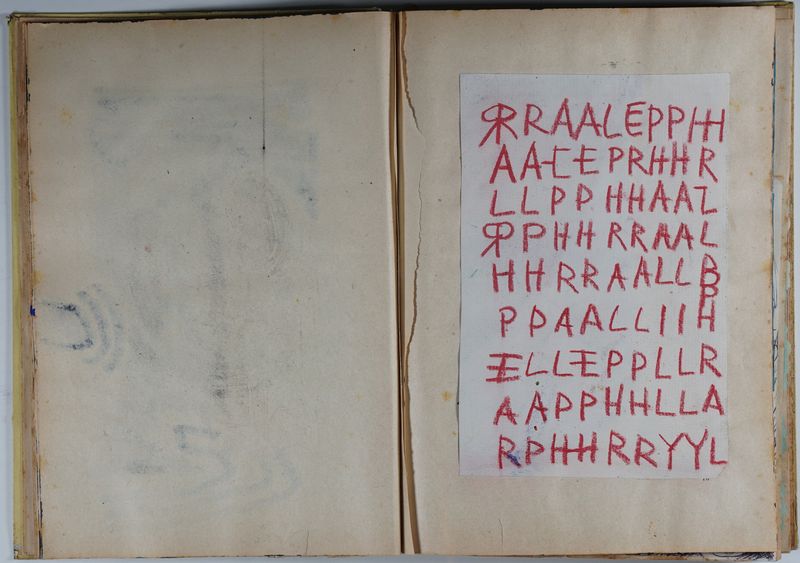 RRAALEPPHH
AALEPRHHR
LLPPHHAAL
RPPHHRRAAL
HHRRAALLB
PPAALLIIH
ELLEPPLLR
AAPPHHLLA
RPHHRRYYL